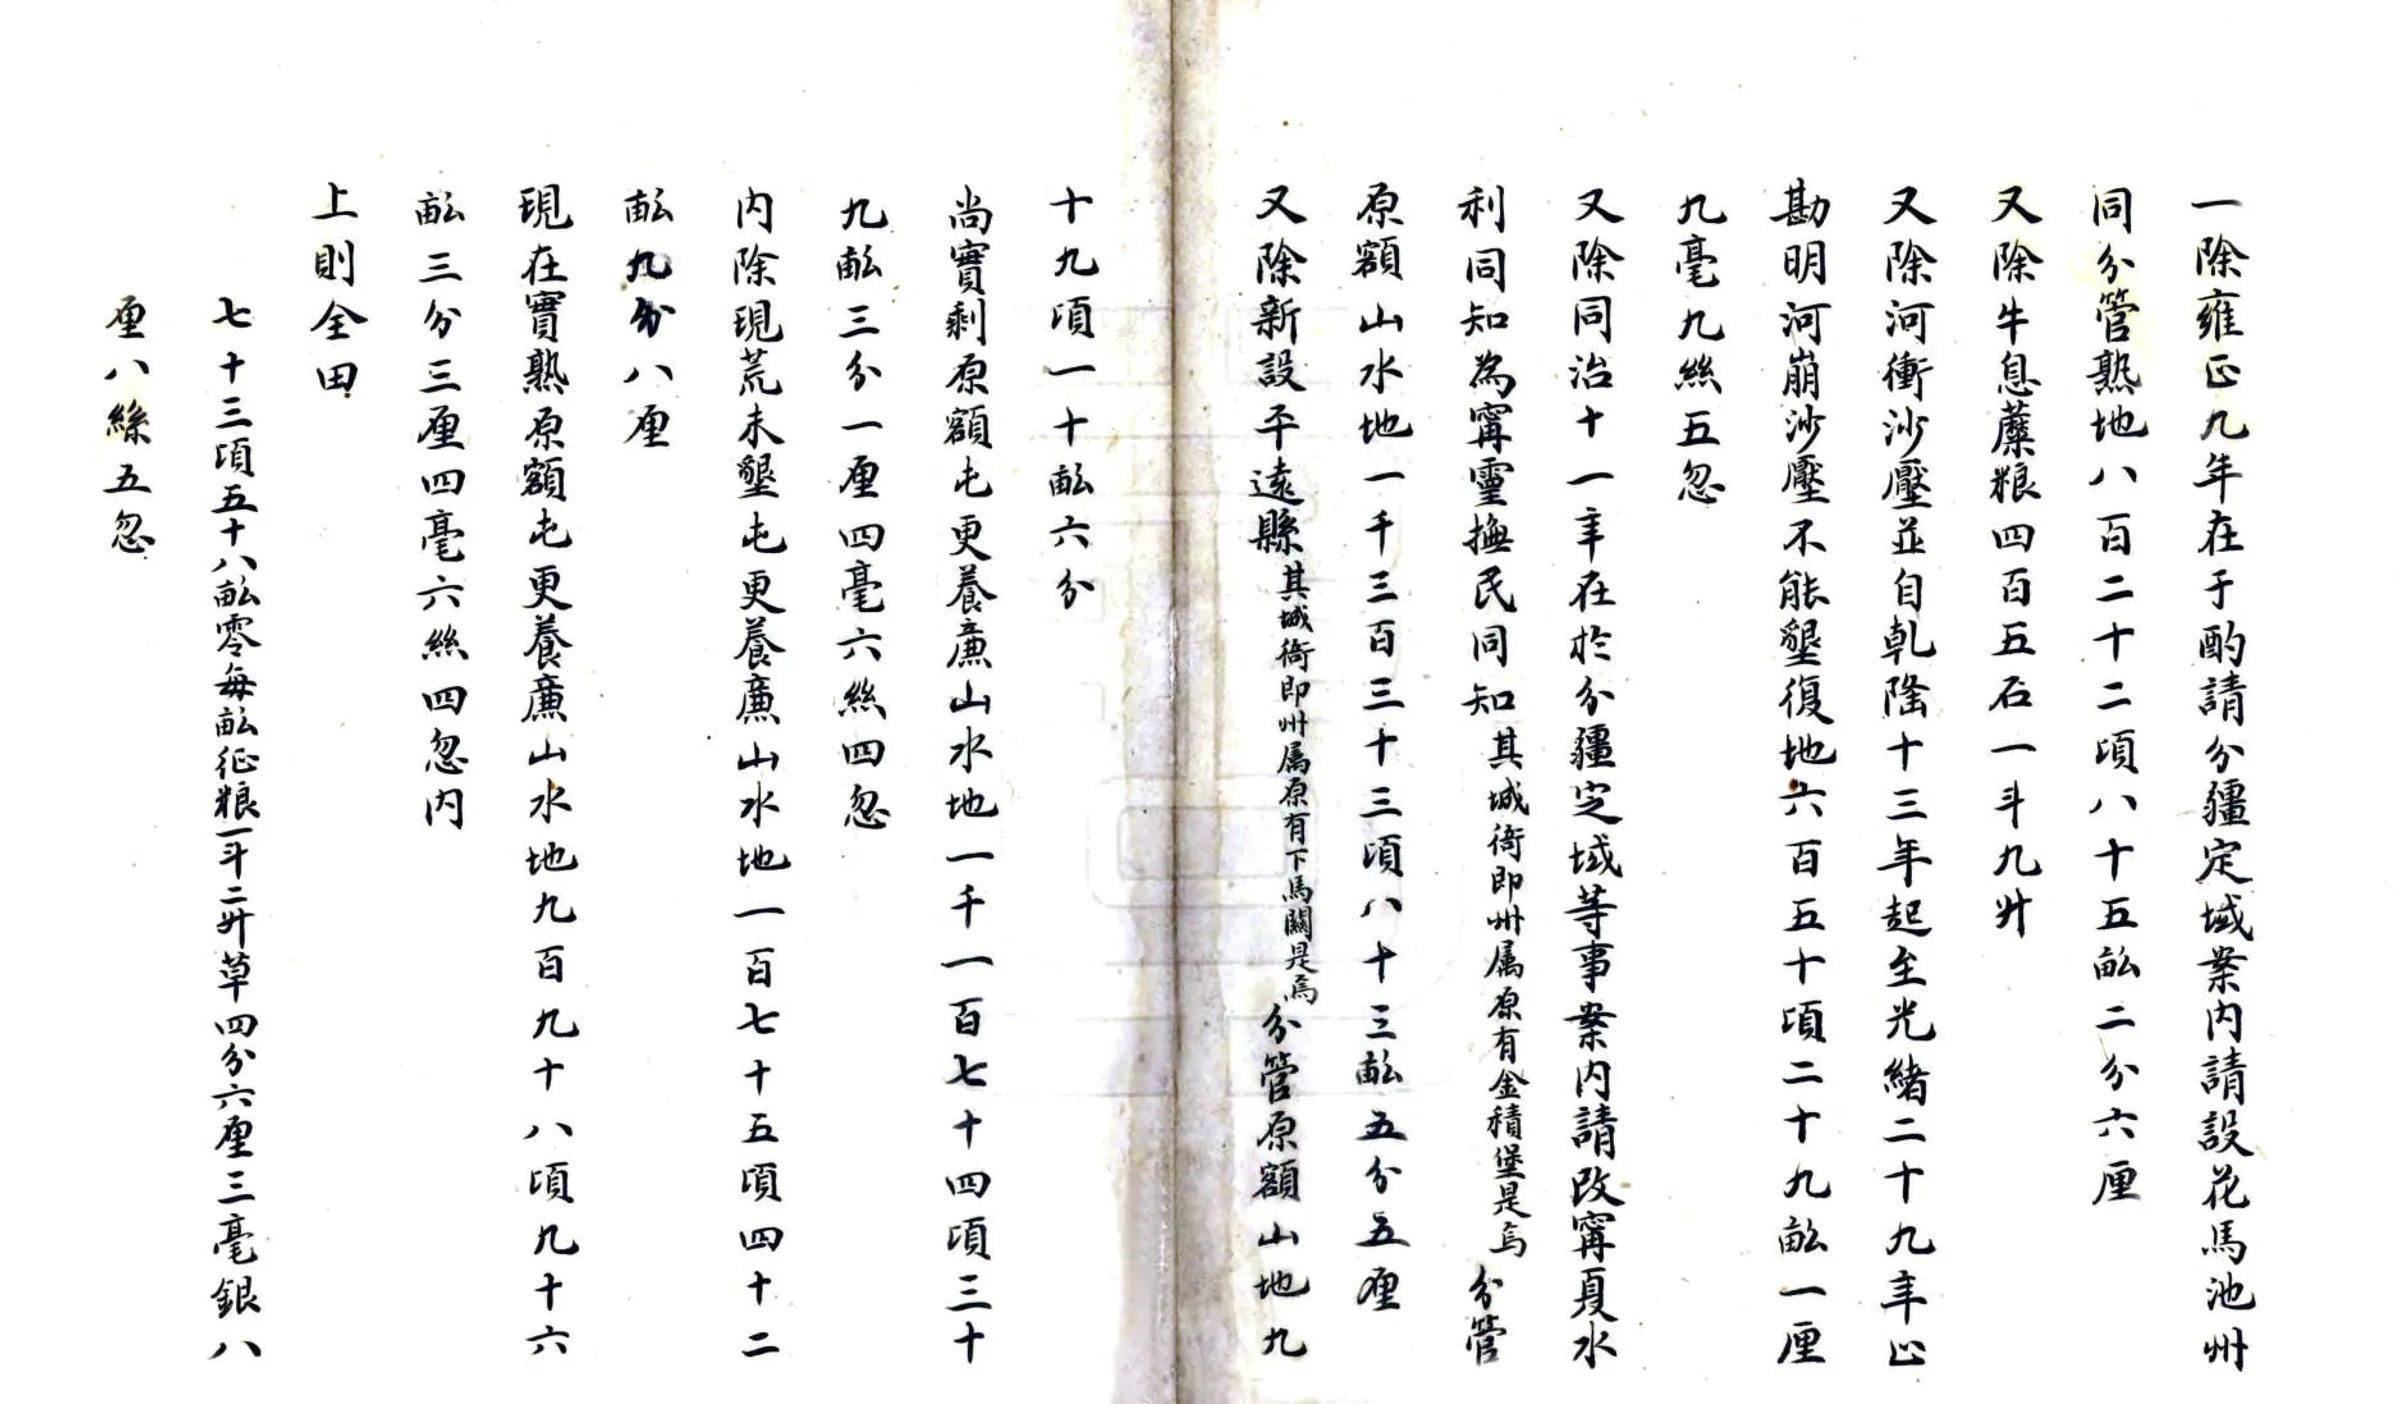 一除雍正九年在于酌請分疆定域案内請設花馬池州
同分管熟地八百二十二頃八十五畝二分六厘
又除牛息蘪粮四百五石一斗九升
又除河衝沙壓並自乹隆十三年起至光緒二十九年止
勘明河崩沙壓不能墾復地六百五十頃二十九畝一厘
九毫九絲五忽
又除同治十一年在於分疆定域等事案内請改甯夏水
利同知為甯靈撫民同知其城衙即州属原有金積堡是焉分管
原額山水地一千三百三十三頃八十三畝五分五厘
又除新設平遠縣其城衙即州属原有下馬關是焉分管原額山地九
十九頃一十畝六分
尚實剩原額屯更養廉山水地一千一百七十四頃三十
九畝三分一厘四毫六絲四忽
内除現荒未墾屯更養廉山水地一百七十五頃四十二
畝九分八厘
現在實熟原額屯更養廉山水地九百九十八頃九十六
畝三分三厘四毫六絲四忽内
上則全田
七十三頃五十八畝零每畝征粮一斗二升草四分六厘三毫銀八
厘八絲五忽